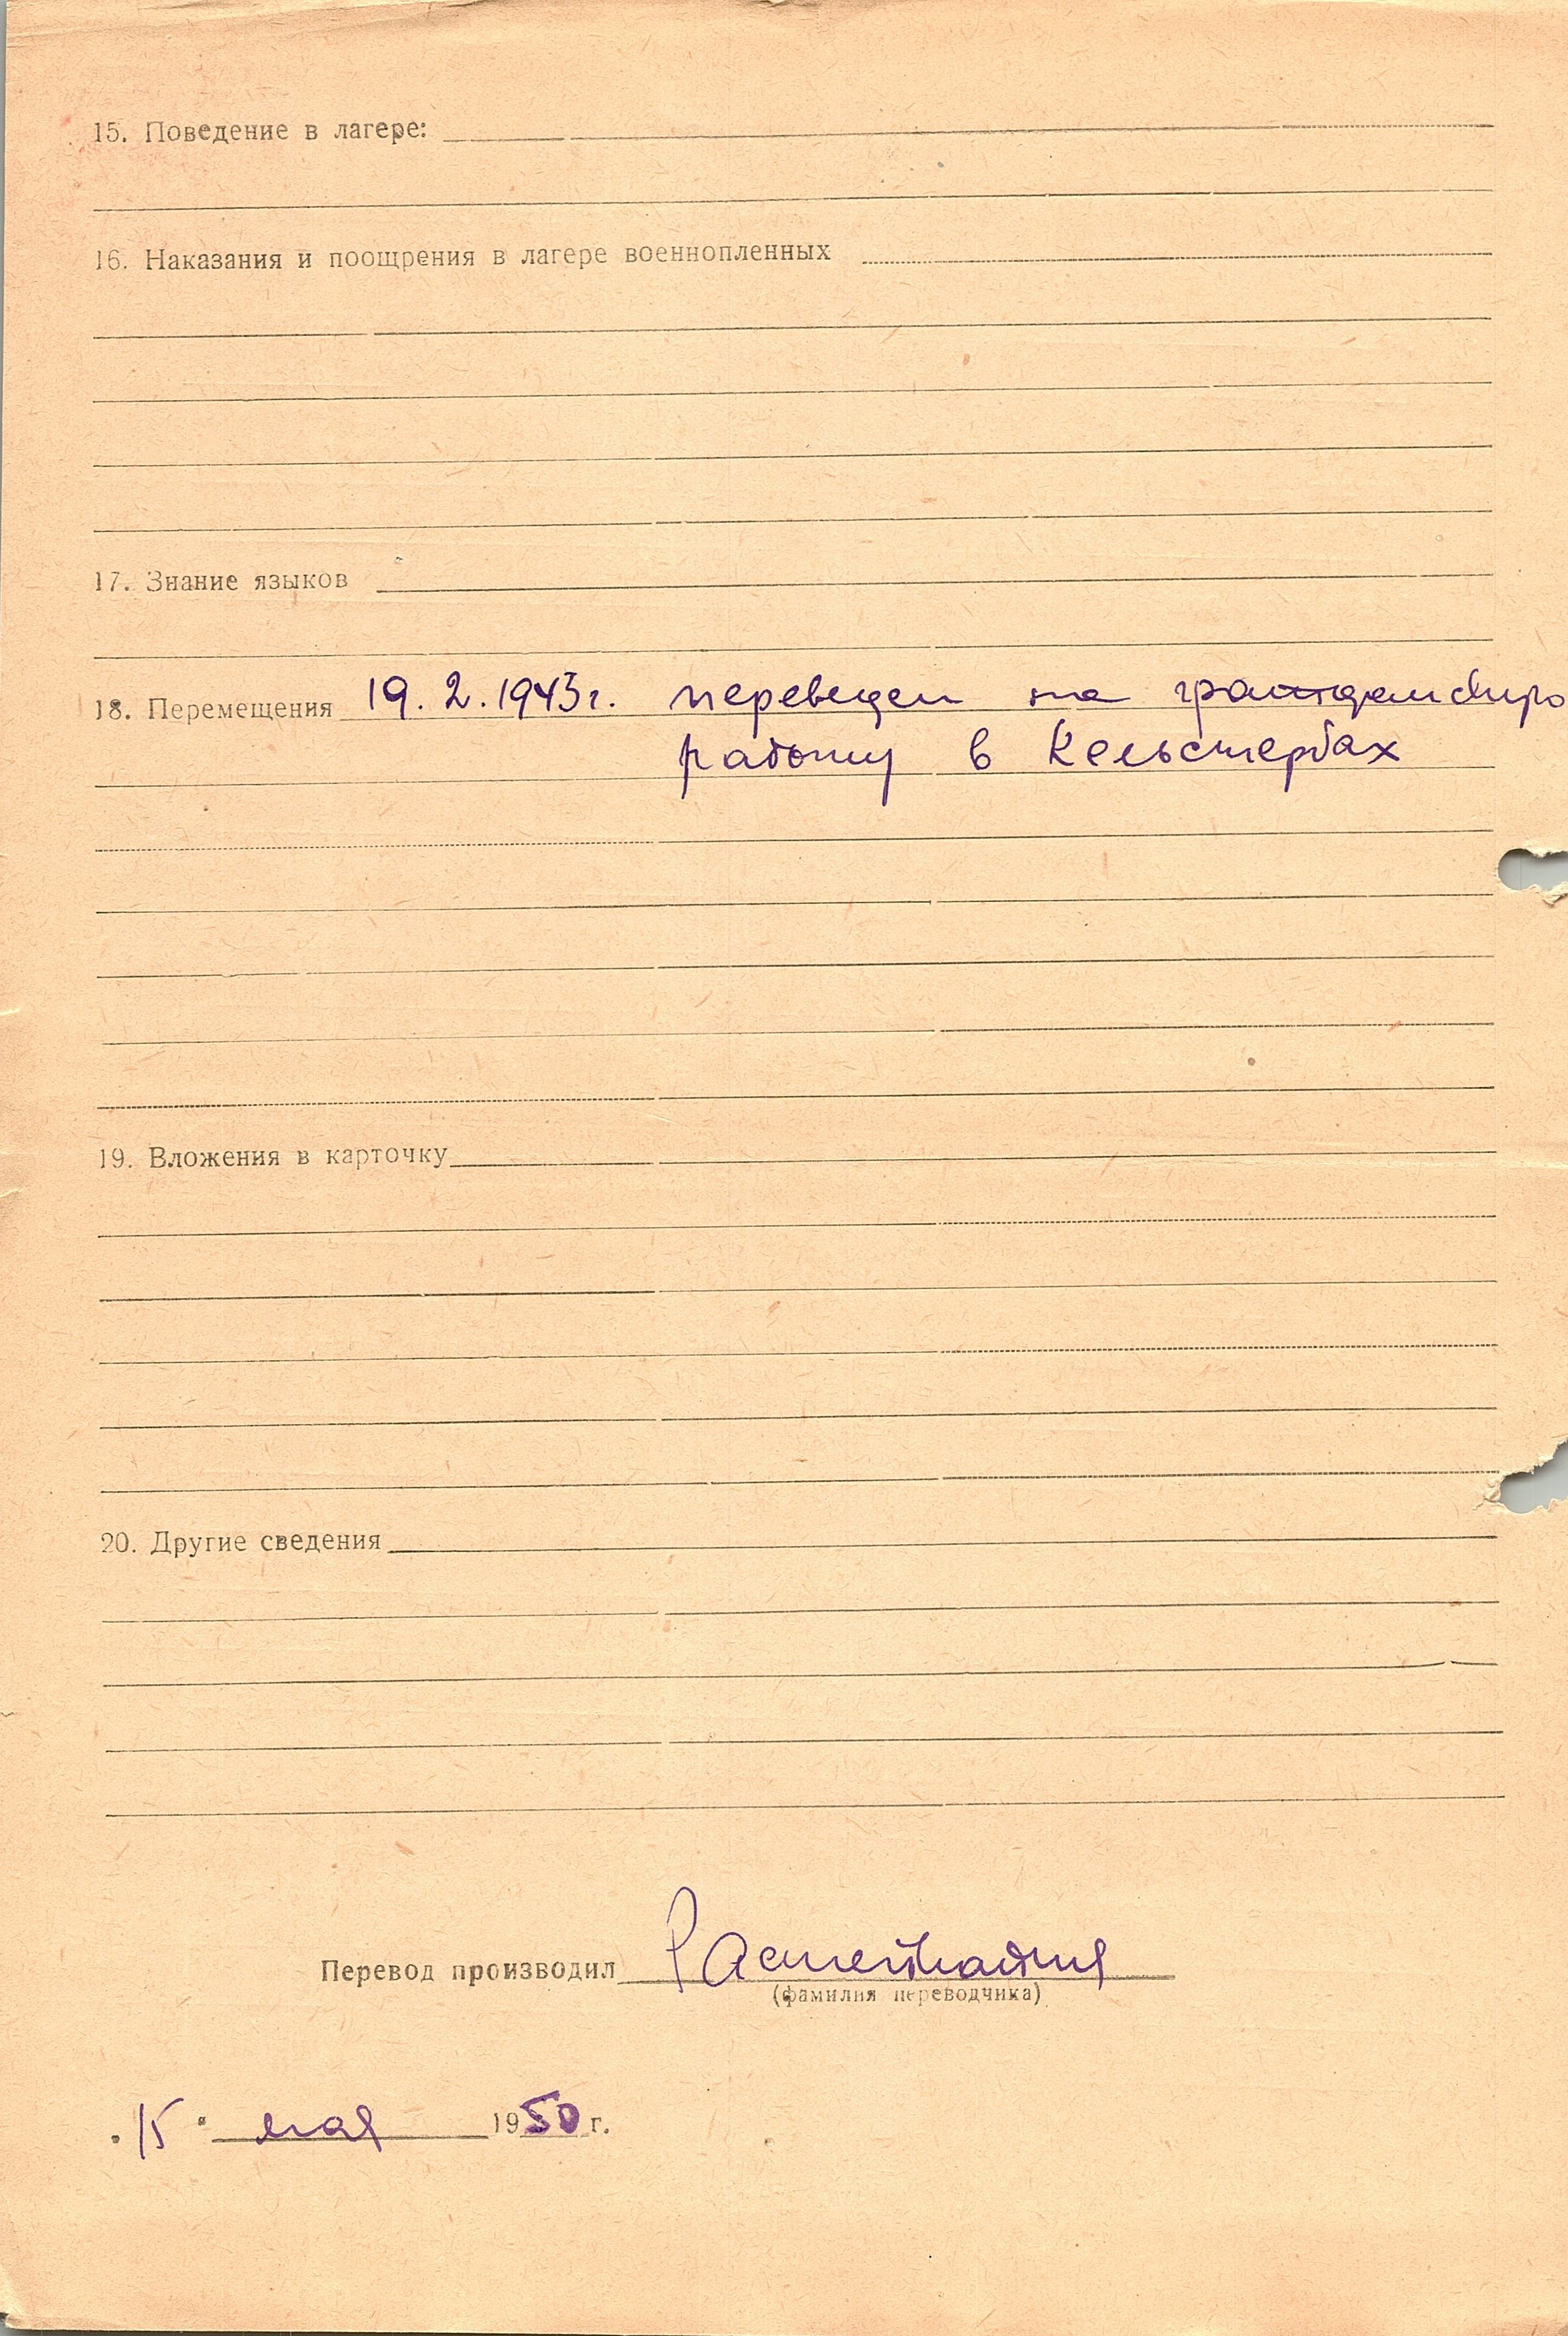 15. Поведение в лагере:
16. Наказания и поощрения в лагере военнопленных
17. Знание языков
18. Перемещения 19.2.1943г. переведен на гражданскую
работу в Кельстербах
19. Вложения в карточку
20. Другие сведения
Перевод производил
(фамилия переводчика)
"15" мая 1950 г.